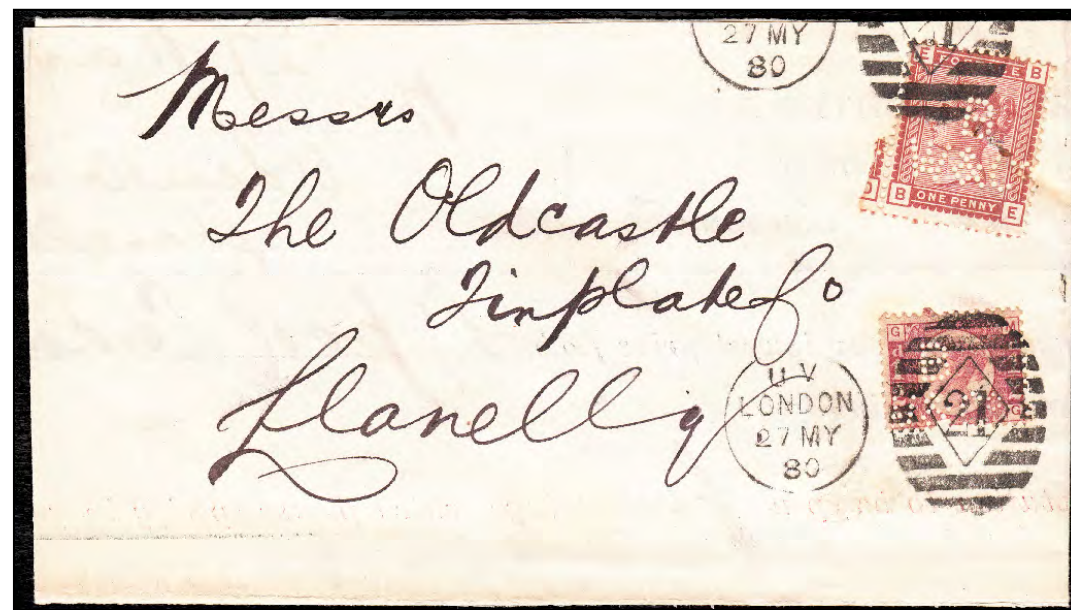 27 MY
80
21
E FOUR E B
B ONE PENNY E
D
Messrs
The Oldcastle
Tinplate Co
Llanelly
UV
LONDON
27 MY
80
21
G M
G